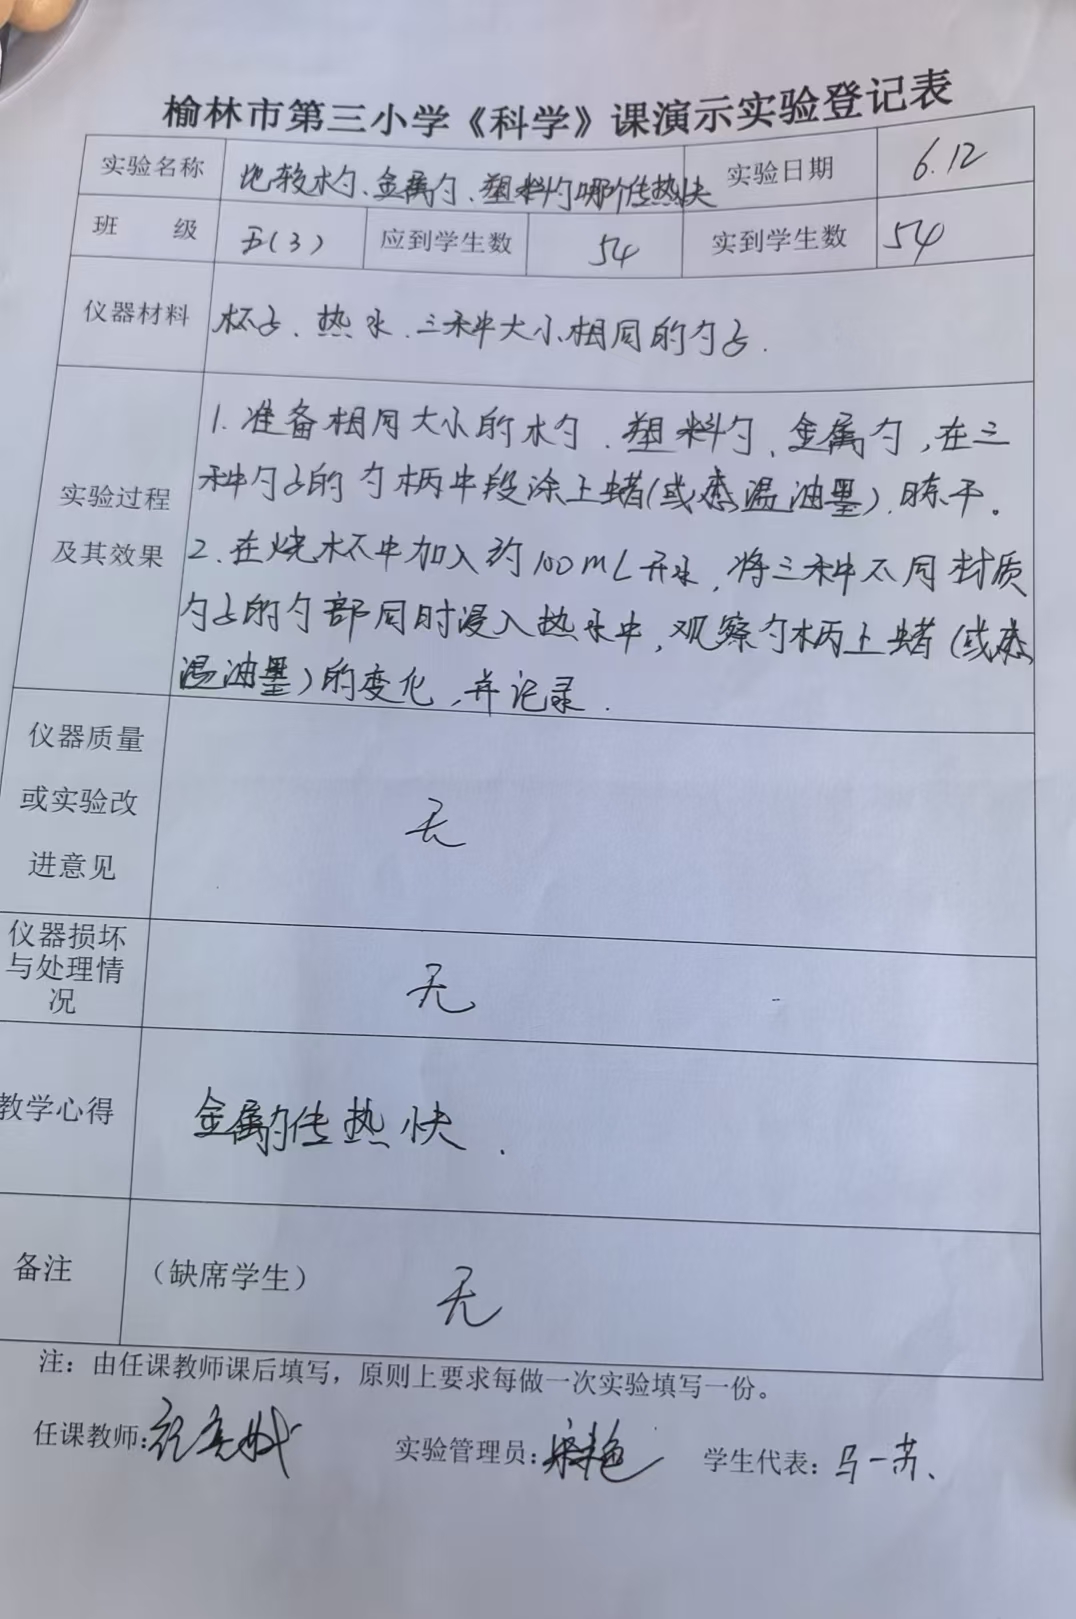 榆林市第三小学《科学》课演示实验登记表
实验名称 比较木勺、金属勺、塑料勺哪个传热快 实验日期 6.12
班 级 五(3) 应到学生数 54 实到学生数 54
仪器材料 杯子、热水、三种大小相同的勺子.
实验过程及其效果
1. 准备相同大小的木勺、塑料勺、金属勺,在三
种勺子的勺柄中段涂上蜡(或感温油墨),晾干。
2. 在烧杯中加入约100mL开水,将三种不同材质
勺子的勺部同时浸入热水中,观察勺柄上蜡(或感
温油墨)的变化,并记录.
仪器质量
或实验改
进意见
无
仪器损坏
与处理情
况
无
教学心得 金属勺传热快.
备注 (缺席学生) 无
注:由任课教师课后填写,原则上要求每做一次实验填写一份。
任课教师: 实验管理员: 学生代表:马一苏